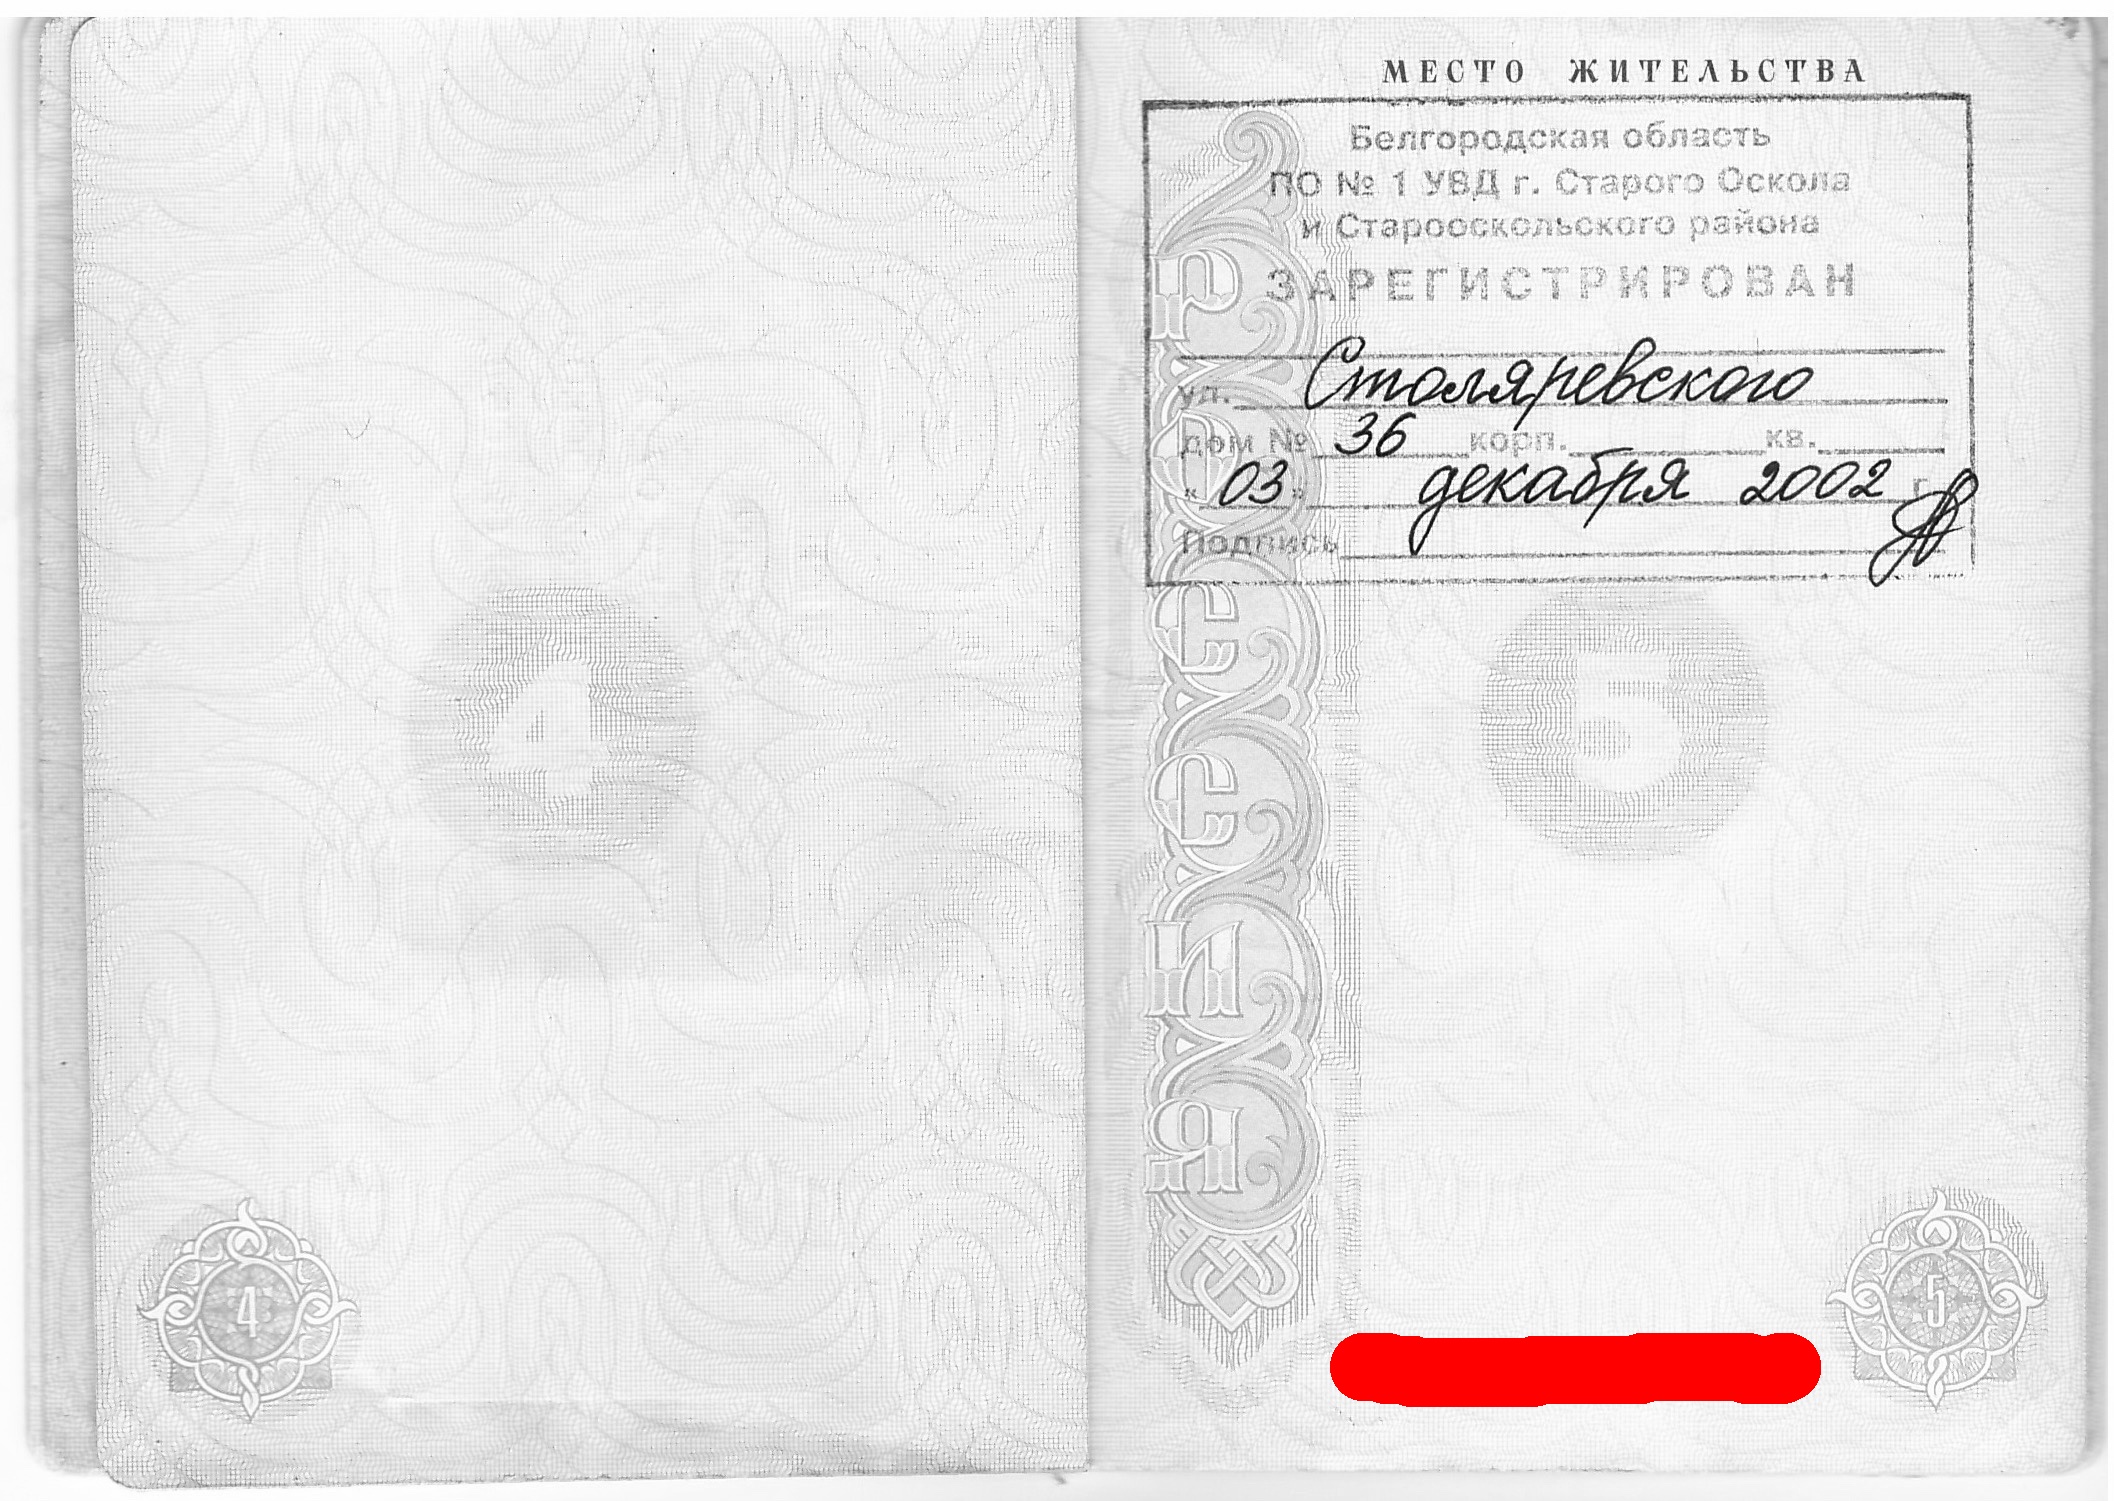 МЕСТО ЖИТЕЛЬСТВА
Белгородская область
ПО № 1 УВД г. Старого Оскола
и Старооскольского района
ЗАРЕГИСТРИРОВАН
ул. Столяревского
дом № 36 корп. кв.
« 03 » декабря 2002 г.
Подпись
РОССИЯ
4
5
4
5